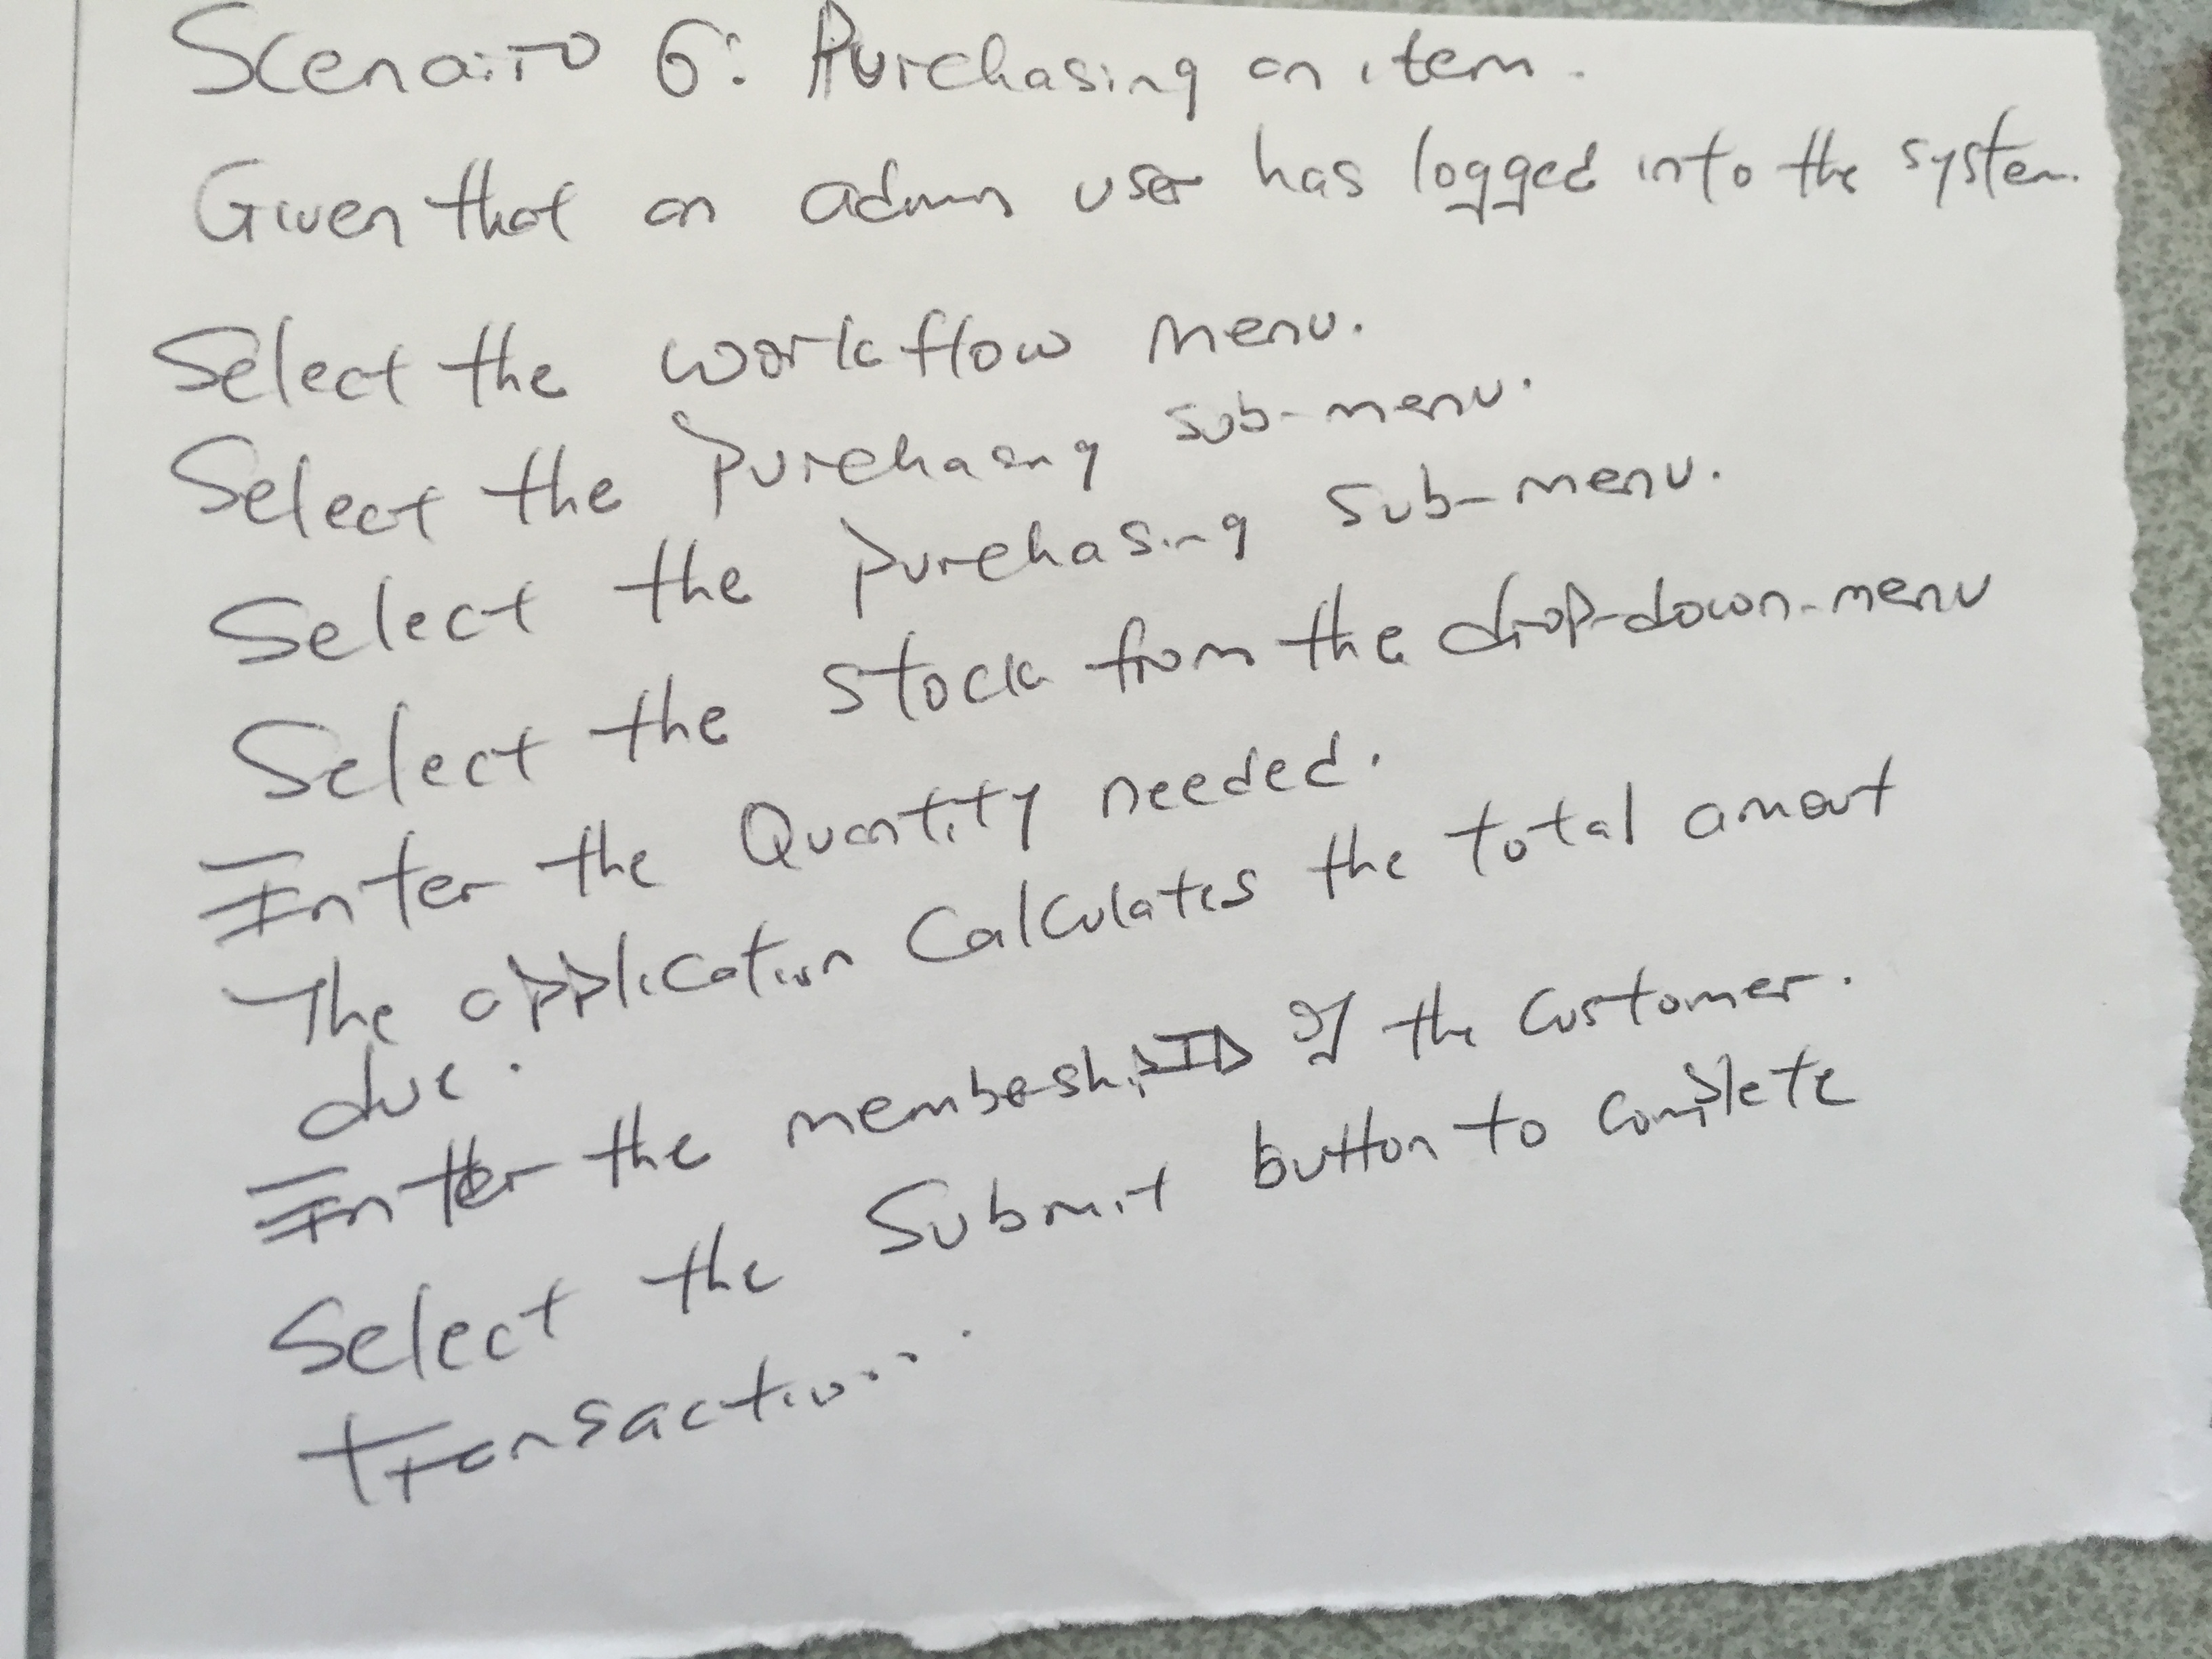 Scenairo 6: Purchasing an item.
Given that an admin user has logged into the system.
Select the workflow menu.
Select the Purchasing sub-menu.
Select the Purchasing sub-menu.
Select the stock from the drop-down-menu
Enter the Quantity needed.
The application Calculates the total amout
due.
Enter the membership ID of the Customer.
Select the Submit button to complete
transaction.